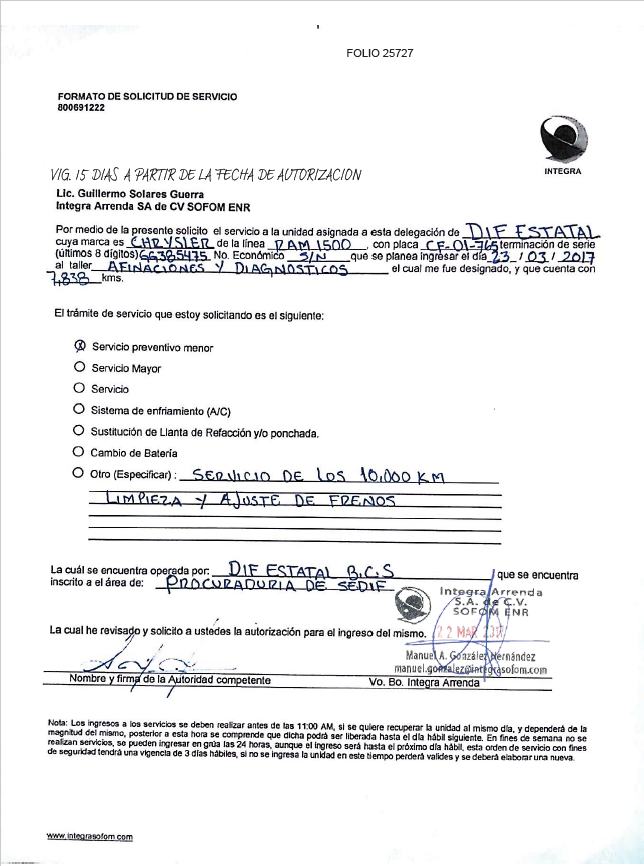 FOLIO 25727
FORMATO DE SOLICITUD DE SERVICIO
800691222
INTEGRA
VIG. 15 DIAS A PARTIR DE LA FECHA DE AUTORIZACION
Lic. Guillermo Solares Guerra
Integra Arrenda SA de CV SOFOM ENR
Por medio de la presente solicito el servicio a la unidad asignada a esta delegación de DIF ESTATAL
cuya marca es CHRYSLER de la línea RAM 1500, con placa CF-01-765 terminación de serie
(últimos 8 dígitos) GG385475 No. Económico S/N que se planea ingresar el día 23 / 03 / 2017
al taller AFINACIONES Y DIAGNOSTICOS el cual me fue designado, y que cuenta con
7,838 kms.
El trámite de servicio que estoy solicitando es el siguiente:
Servicio preventivo menor
Servicio Mayor
Servicio
Sistema de enfriamiento (A/C)
Sustitución de Llanta de Refacción y/o ponchada.
Cambio de Batería
Otro (Especificar) : SERVICIO DE LOS 10,000 KM
LIMPIEZA Y AJUSTE DE FRENOS
La cuál se encuentra operada por: DIF ESTATAL B.C.S que se encuentra
inscrito a el área de: PROCURADURIA DE SEDIF
Integra Arrenda
S.A. de C.V.
SOFOM ENR
La cual he revisado y solicito a ustedes la autorización para el ingreso del mismo.
22 MAR 2017
Manuel A. González Hernández
manuel.gonzalez@integrasofom.com
Nombre y firma de la Autoridad competente
Vo. Bo. Integra Arrenda
Nota: Los ingresos a los servicios se deben realizar antes de las 11:00 AM, si se quiere recuperar la unidad al mismo día, y dependerá de la
magnitud del mismo, posterior a esta hora se comprende que dicha podrá ser liberada hasta el día hábil siguiente. En fines de semana no se
realizan servicios, se pueden ingresar en grúa las 24 horas, aunque el ingreso será hasta el próximo día hábil, esta orden de servicio con fines
de seguridad tendrá una vigencia de 3 días hábiles, si no se ingresa la unidad en este tiempo perderá valides y se deberá elaborar una nueva.
www.integrasofom.com